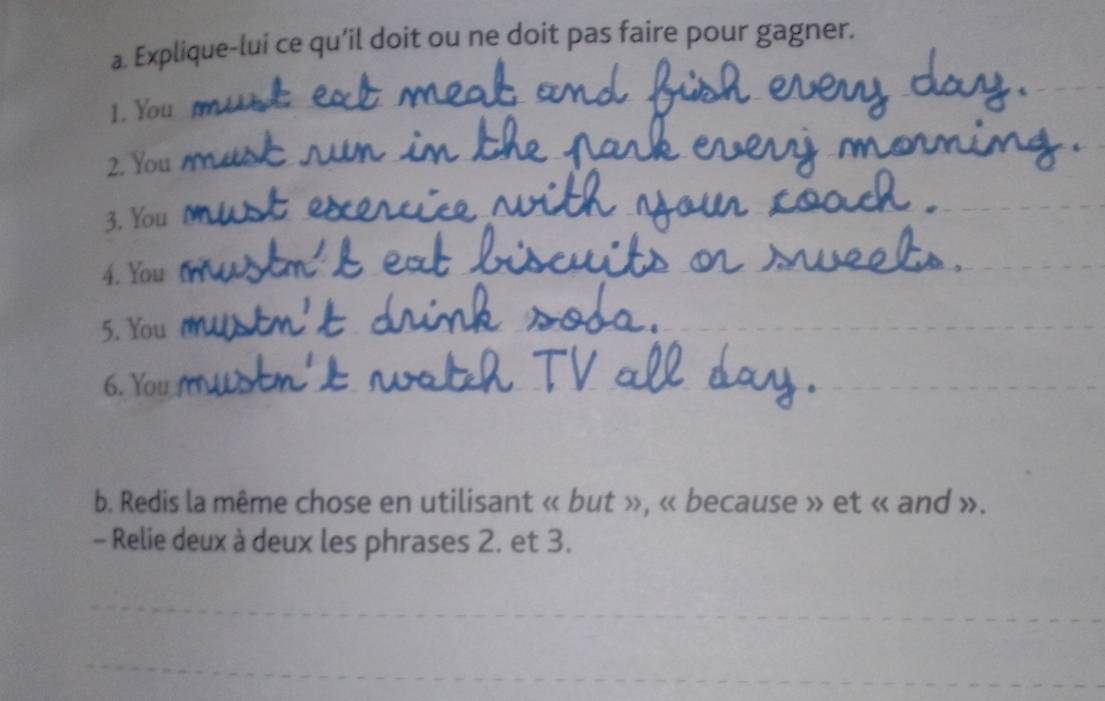 a. Explique-lui ce qu'il doit ou ne doit pas faire pour gagner.
1. You must eat meat and fish every day.
2. You must run in the park every morning.
3. You must exercice with your coach.
4. You mustn't eat biscuits or sweets.
5. You mustn't drink soda.
6. You mustn't watch TV all day.
b. Redis la même chose en utilisant « but », « because » et « and ».
– Relie deux à deux les phrases 2. et 3.